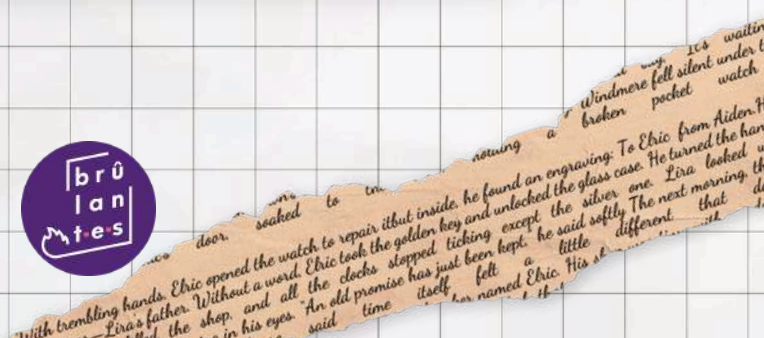 brû
lan
t•e•s
It's waiting
Windmere fell silent under t
broken pocket watch
a
soaked to
door,
With trembling hands, Elric opened the watch to repair itbut inside, he found an engraving: To Elric from Aiden.H
—Lira's father. Without a word, Elric took the golden key and unlocked the glass case. He turned the han
the shop, and all the clocks stopped ticking except the silver one. Lira looked
in his eyes. "An old promise has just been kept," he said softly The next morning, th
said time itself felt a little different that
named Elric. His